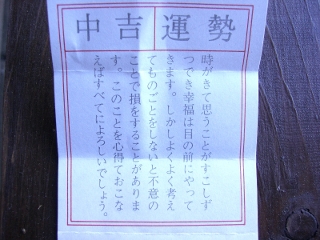 運勢 中吉
時がきて思うことがすこしず
つでき幸福は目の前にやって
きます。しかしよくよく考え
てものごとをしないと不意の
ことで損をすることがありま
す。このことを心得ておこな
えばすべてによろしいでしょう。